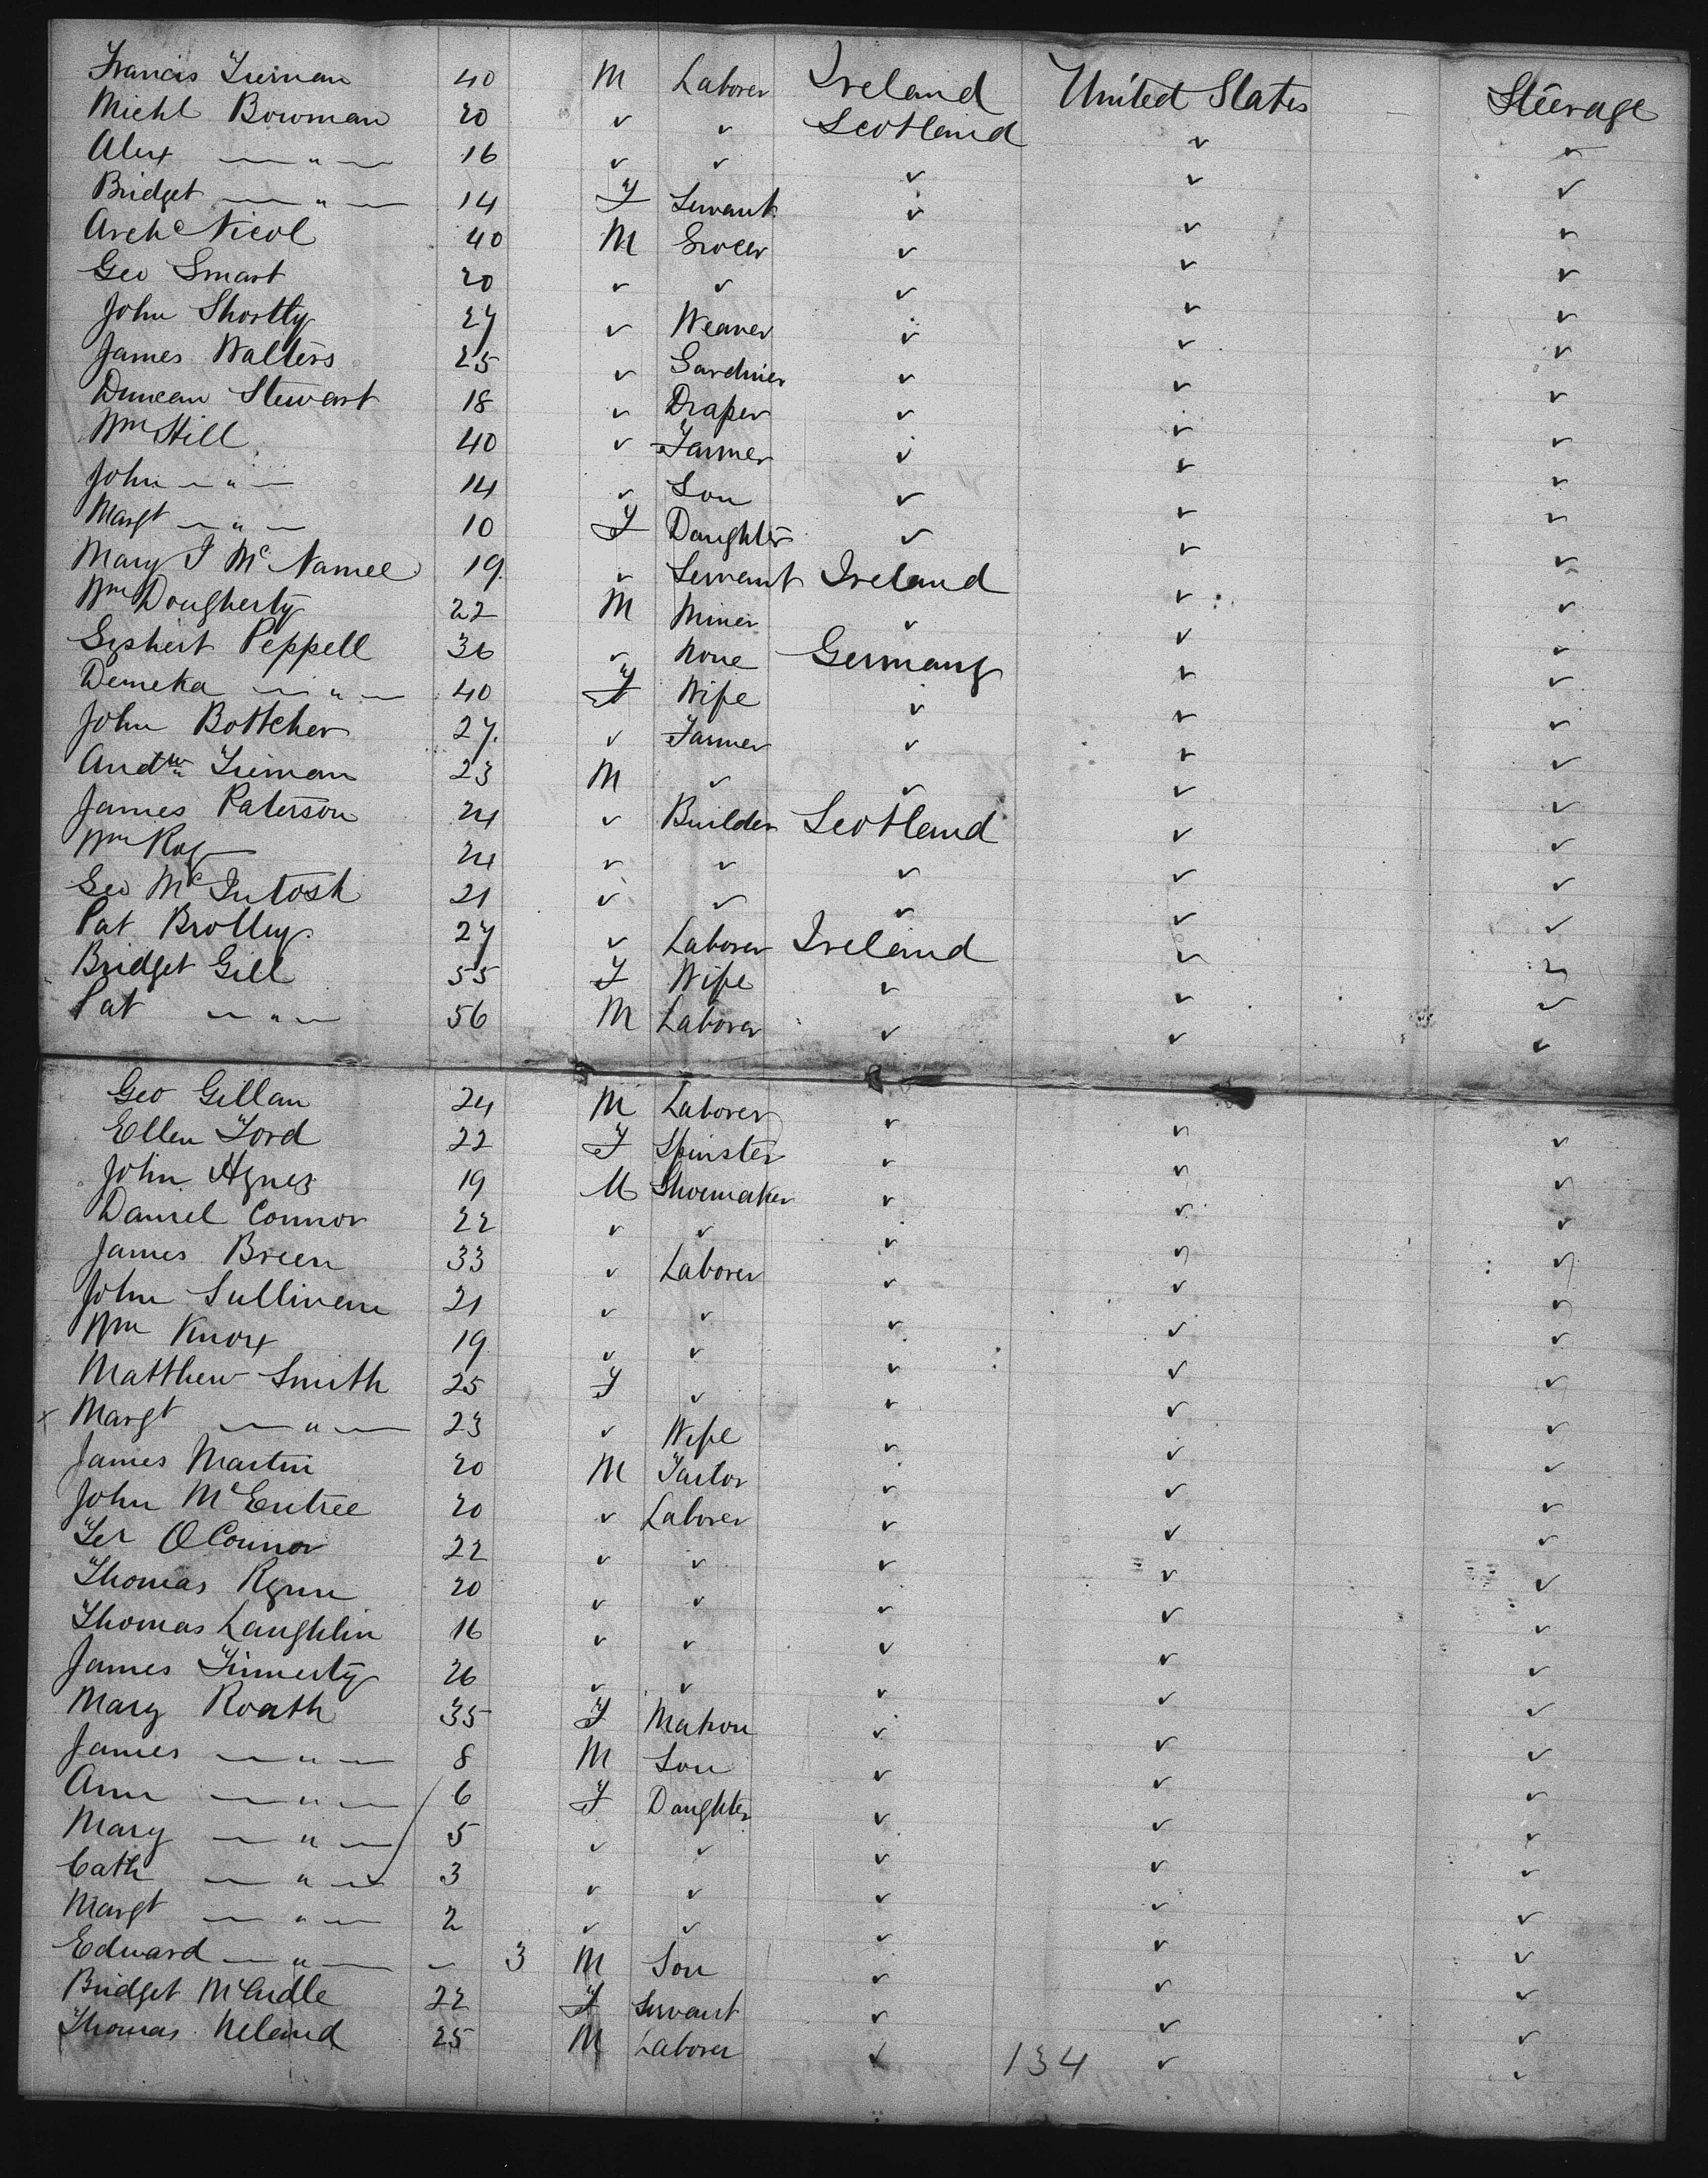 Francis Tiernan 40 M Laborer Ireland United States Steerage
Michl Bowman 20 " " Scotland " "
Alex — " — 16 " " " " "
Bridget — " — 14 F Servant " " "
Archd Nicol 40 M Grocer " " "
Geo Smart 20 " " " " "
John Shortly 27 " Weaver " " "
James Walters 25 " Gardnier " " "
Duncan Stewart 18 " Draper " " "
Wm Hill 40 " Farmer " " "
John — " — 14 " Son " " "
Margt — " — 10 F Daughter " " "
Mary J McNamee 19 " Servant Ireland " "
Wm Dougherty 22 M Miner " " "
Peppell 36 " None Germany " "
Demeka — " — 40 F Wife " " "
John Bottcher 27 " Farmer " " "
Andw 23 M " " " "
James Paterson 24 " Builder Scotland " "
Wm 24 " " " " "
Geo McIntosh 21 " " " " "
Pat Brolly 27 " Laborer Ireland " "
Bridget Gill 55 F Wife " " "
Pat — " — 56 M Laborer " " "
Geo Gillan 24 M Laborer " " "
Ellen Ford 22 F Spinster " " "
John Agnes 19 M Shoemaker " " "
Daniel Connor 22 " " " " "
James Breen 33 " Laborer " " "
John Sullivan 21 " " " " "
Wm Knox 19 " " " " "
Matthew Smith 25 F " " " "
x Margt — " — 23 " Wife " " "
James Martin 20 M Tailor " " "
John McEntree 20 " Laborer " " "
Ter O'Connor 22 " " " " "
Thomas Rynn 20 " " " " "
Thomas Laughlin 16 " " " " "
James Finnerty 26 " " " " "
Mary Roath 35 F Matron " " "
James — " — 8 M Son " " "
Ann — " — 6 F Daughter " " "
Mary — " — 5 " " " " "
Cath — " — 3 " " " " "
Margt — " — 2 " " " " "
Edward — " — - 3 M Son " " "
Bridget McArdle 22 F Servant " " "
Thomas Neland 25 M Laborer " " "
134